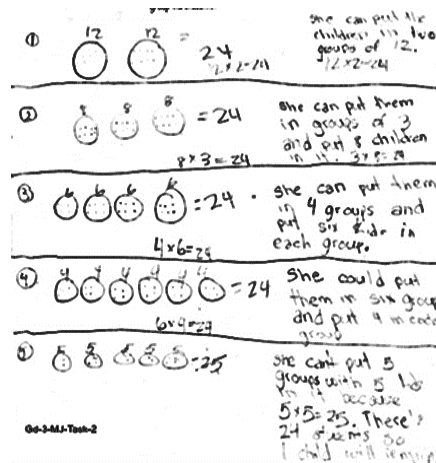 ① 12 12 = 24
12 x 2=24
she can put the
children in two
groups of 12.
12 x 2=24
② 8 8 8 = 24
8 x 3 = 24
she can put them
in groups of 3
and put 8 children
in it. 3 x 8=24
③ 6 6 6 6 = 24
4x6=24
she can put them
in 4 groups and
put six kids in
each group.
④ 4 4 4 4 4 4 = 24
6x4=24
She could put
them in six group
and put 4 in each
group
⑤ 5 5 5 5 5 = 25
she can't put 5
groups with 5 kids
in it because
5x5=25. There's
24 so
1 child will
Gd-3-MJ-Task-2